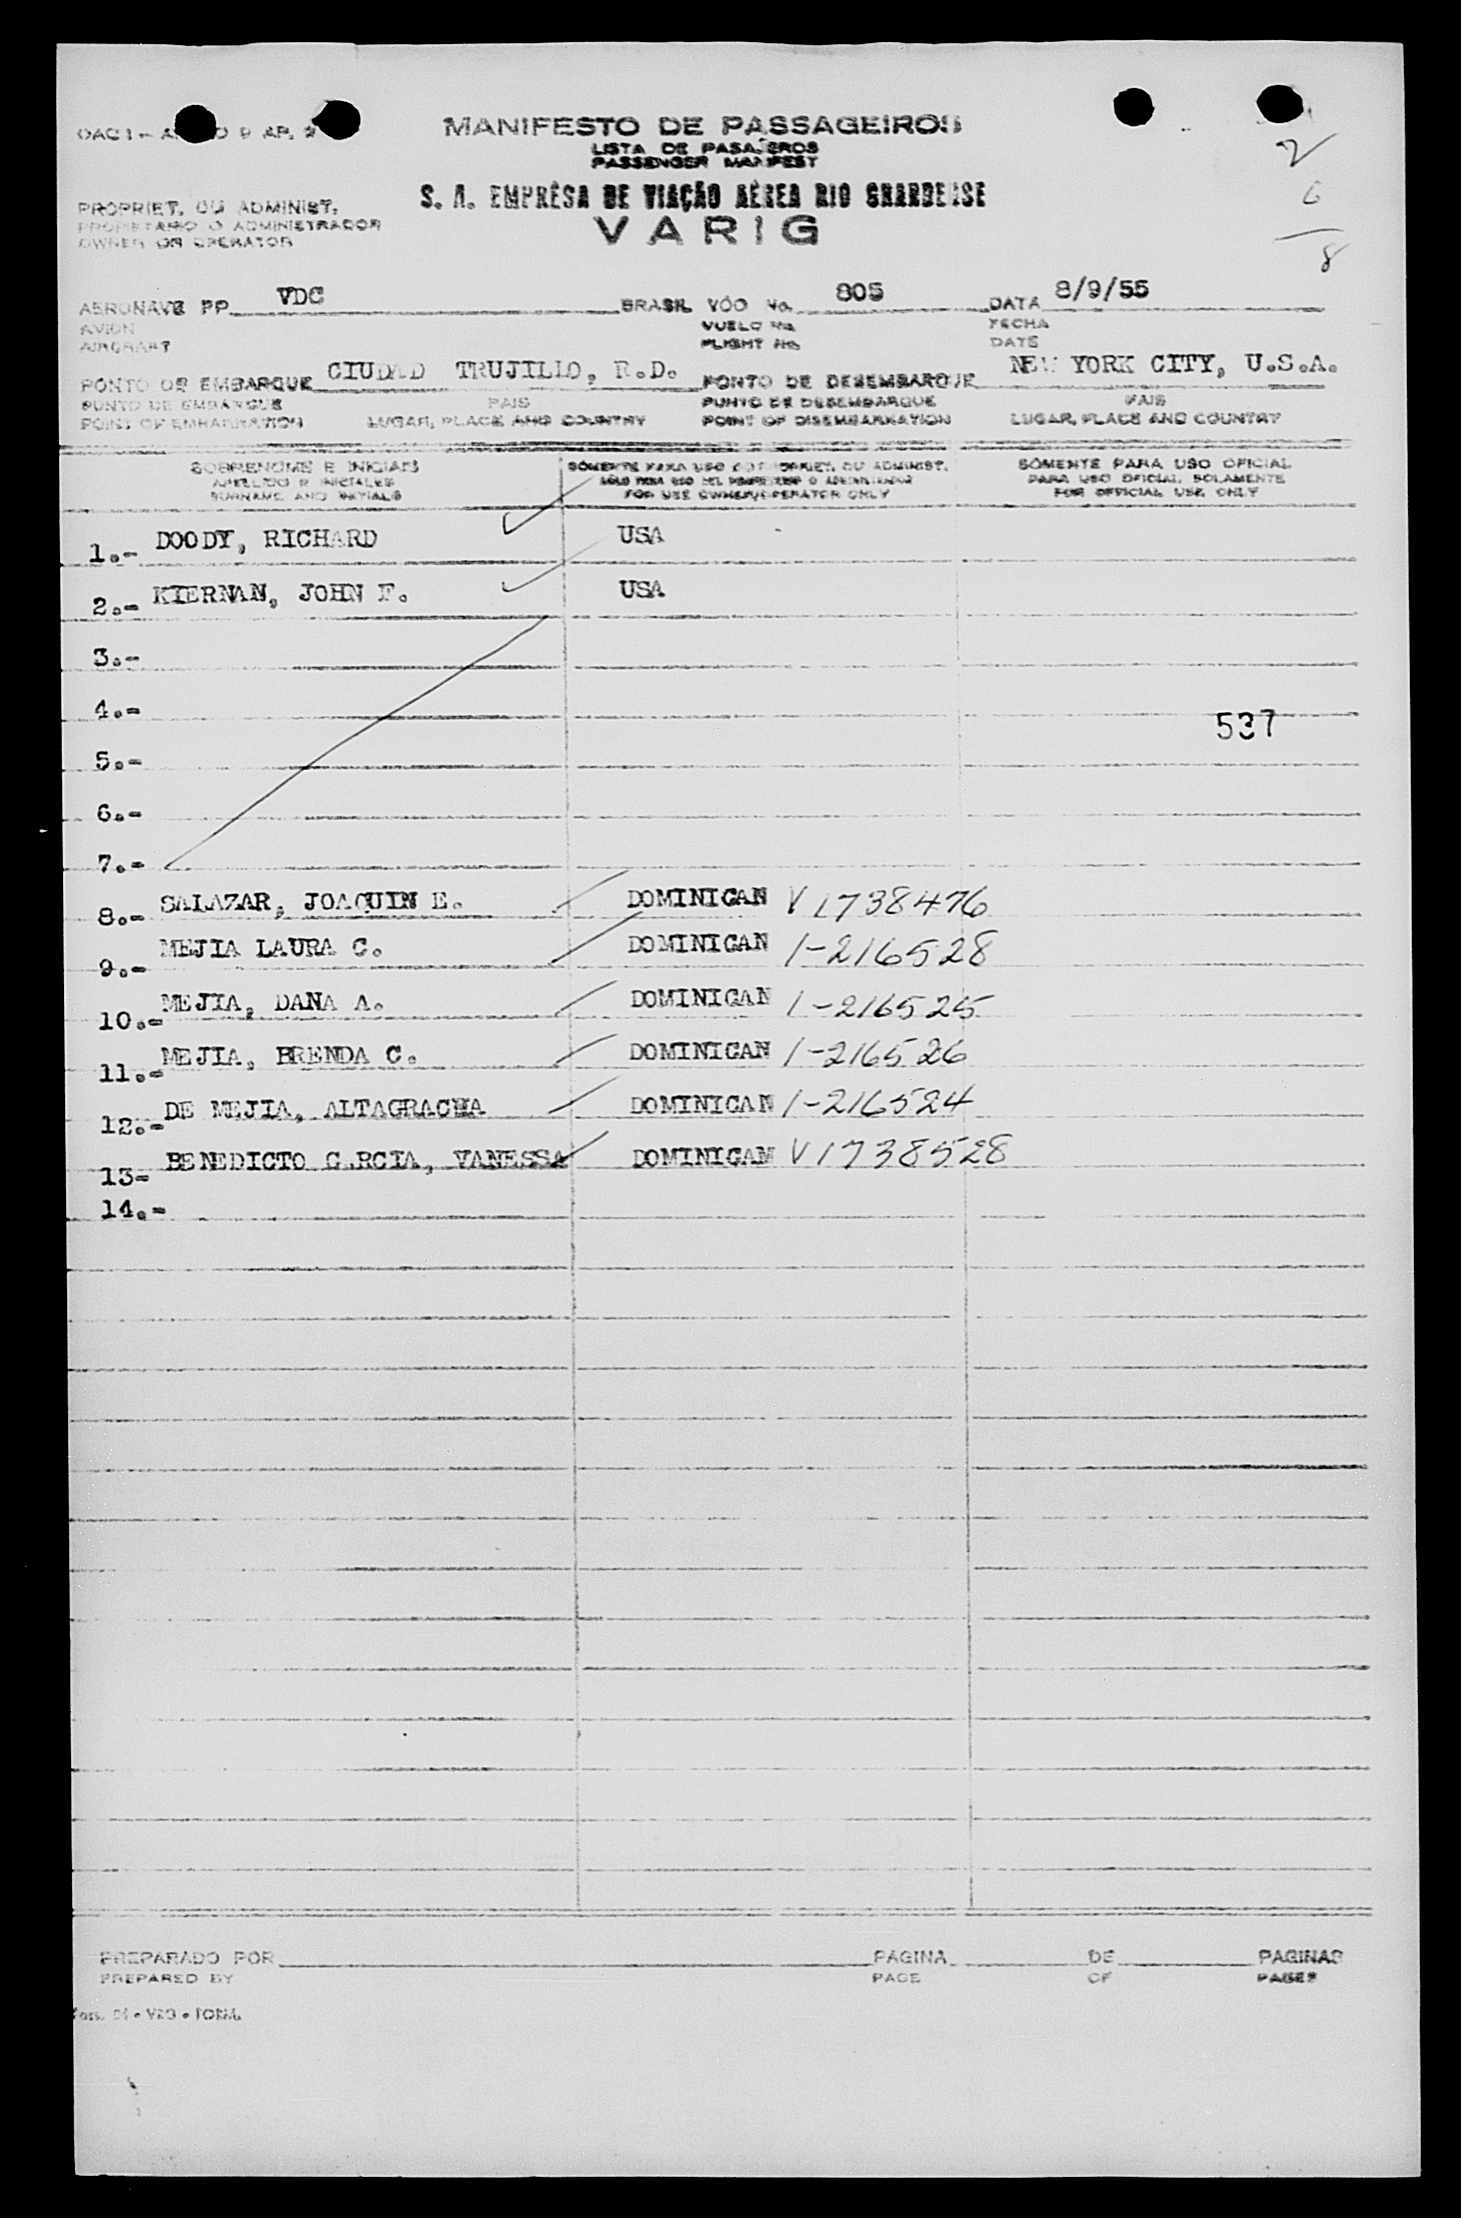 MANIFESTO DE PASSAGEIROS
LISTA DE PASAJEROS
PASSENGER MANIFEST
2
6
8
S. A. EMPRÊSA DE VIAÇÃO AÉREA RIO GRANDENSE
VARIG
PROPRIET. OU ADMINIST.
PROPIETARIO O ADMINISTRADOR
OWNER OR OPERATOR
AERONAVE PP VDC BRASIL VÔO No. 805 DATA 8/9/55
AVION VUELO No. FECHA
AIRCRAFT FLIGHT No. DATE
PONTO DE EMBARQUE CIUDAD TRUJILLO, R.D. PONTO DE DESEMBARQUE NEW YORK CITY, U.S.A.
PUNTO DE EMBARQUE PAIS PUNTO DE DESEMBARQUE PAIS
POINT OF EMBARKATION LUGAR, PLACE AND COUNTRY POINT OF DISEMBARKATION LUGAR, PLACE AND COUNTRY
SOBRENOME E INICIAIS SÓMENTE PARA USO DO PROPRIET. OU ADMINIST. SÓMENTE PARA USO OFICIAL
APELLIDO E INICIALES SOLO PARA USO DEL PROPIETARIO O ADMINISTRADOR PARA USO OFICIAL SOLAMENTE
SURNAME AND INITIALS FOR USE OWNER/OPERATOR ONLY FOR OFFICIAL USE ONLY
1.- DOODY, RICHARD USA
2.- KIERNAN, JOHN F. USA
3.-
4.-
537
5.-
6.-
7.-
8.- SALAZAR, JOAQUIN E. DOMINICAN V 1738476
9.- MEJIA LAURA C. DOMINICAN 1-216528
10.- MEJIA, DANA A. DOMINICAN 1-216525
11.- MEJIA, BRENDA C. DOMINICAN 1-216526
12.- DE MEJIA, ALTAGRACIA DOMINICAN 1-216524
13- BENEDICTO GARCIA, VANESSA DOMINICAM V 1738528
14.-
PREPARADO POR PAGINA DE PAGINAS
PREPARED BY PAGE OF PAGES